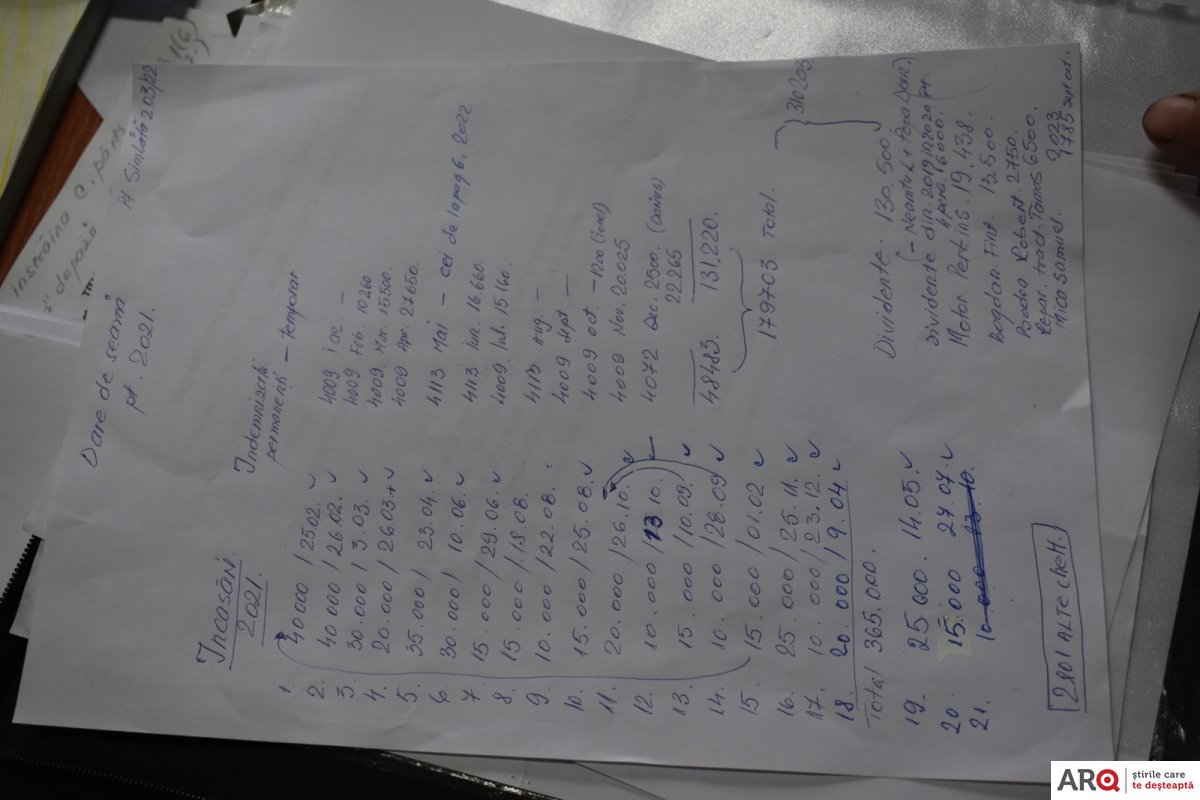 Dare de seamă
pt. 2021.
pt Simbătă 203/22
Încasări
2021.
Indemnizații
permanenti - temporar
1. 40 000 / 25.02. ✓
2. 40 000 / 26.02. ✓
3. 30.000 / 3.03. ✓
4. 20.000 / 26.03.+ ✓
5. 35.000 / 23.04. ✓
6. 30.000 / 10.06. ✓
7. 15.000 / 29.06. ✓
8. 15.000 / 18.08.
9. 10.000 / 22.08.
10. 15.000 / 25.08. ✓
11. 20.000 / 26.10. ✓
12. 10.000 / 13 10. ✓
13. 15.000 / 10.09. ✓
14. 10.000 / 28.09 ✓
15. 15.000 / 01.02 ✓
16. 25.000 / 25.11. ✓
17. 10.000 / 23.12. ✓
18. 20.000 / 9.04 ✓
Total 365.000.
19. 25.000. 14.05. ✓
20 15.000 27.07. ✓
21. 10.000 13.10.
2801 ALTE CHELT.
4009 iac -
4009 Feb. 10260
4009. Mar. 15500.
4009 Apr. 27650.
4113 Mai - cei de la pag 6. 2022
4113 iun. 16.660.
4009. Iul. 15160.
4113 aug. -
4009 sept -
4009 oct - 1200 (ionel)
4009 Nov. 20.025
4072 Dec. 2500. (Darius)
22.265
48483. 131.220.
179703 Total.
310203
Dividente. 130.500
(- Neamțu L + Popa Dora)
Dividente din. 2019 in 2020 pt.
4 pers. 16000.
Motor Perkins. 19.438.
Bogdan Fint. 13.500.
Robert. 2750.
Repar. tract. Tamas 6500.
Mica Samuel. 2023
1785 sept oct.
instrăina
depozi
ARQ știrile care
te deșteaptă